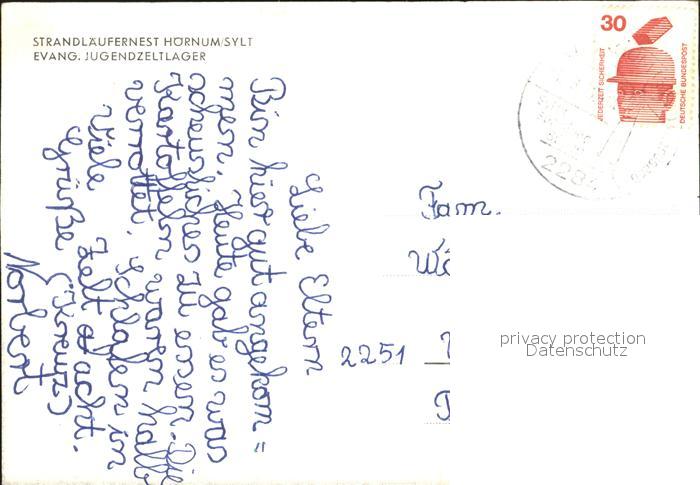 STRANDLÄUFERNEST HÖRNUM/SYLT
EVANG. JUGENDZELTLAGER
30
JEDERZEIT SICHERHEIT
DEUTSCHE BUNDESPOST
Liebe Eltern
Bin hier gut angekom=
men. Heute gab es was
scheusliches zu essem. Die
Kartoffeln waren halb
verrottet. Schlafen im
Zelt a acht.
Viele
Grüße (Kreuz)
Norbert
Fam.
Wä
2251
privacy protection
Datenschutz